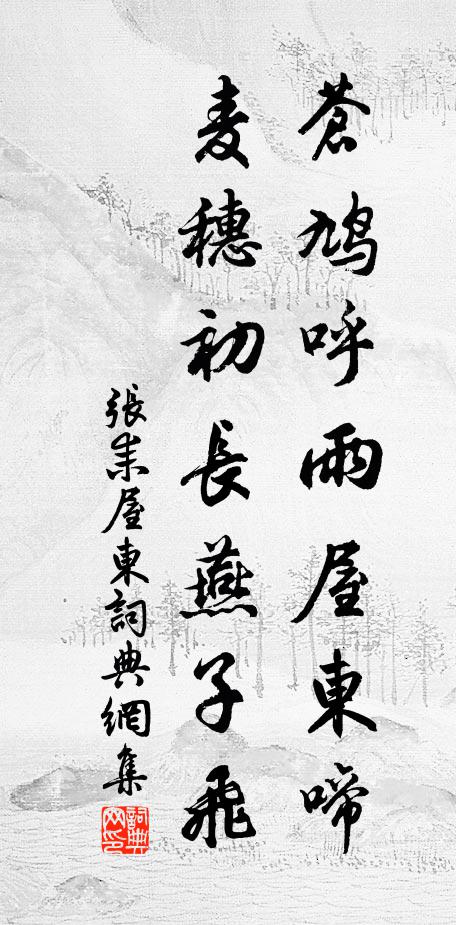 蒼鳩呼雨屋東啼
麦穗初長燕子飛
張耒屋東詞典網集
詞典网印